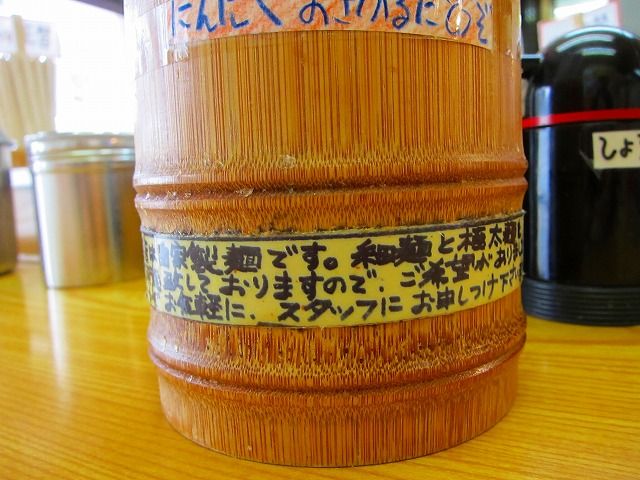 にんにく おさけるにどうぞ
自家製麺です。細麺と極太麺と
しておりますので、ご希望がありまし
お気軽に、スタッフにお申しつけ下さい
しょ